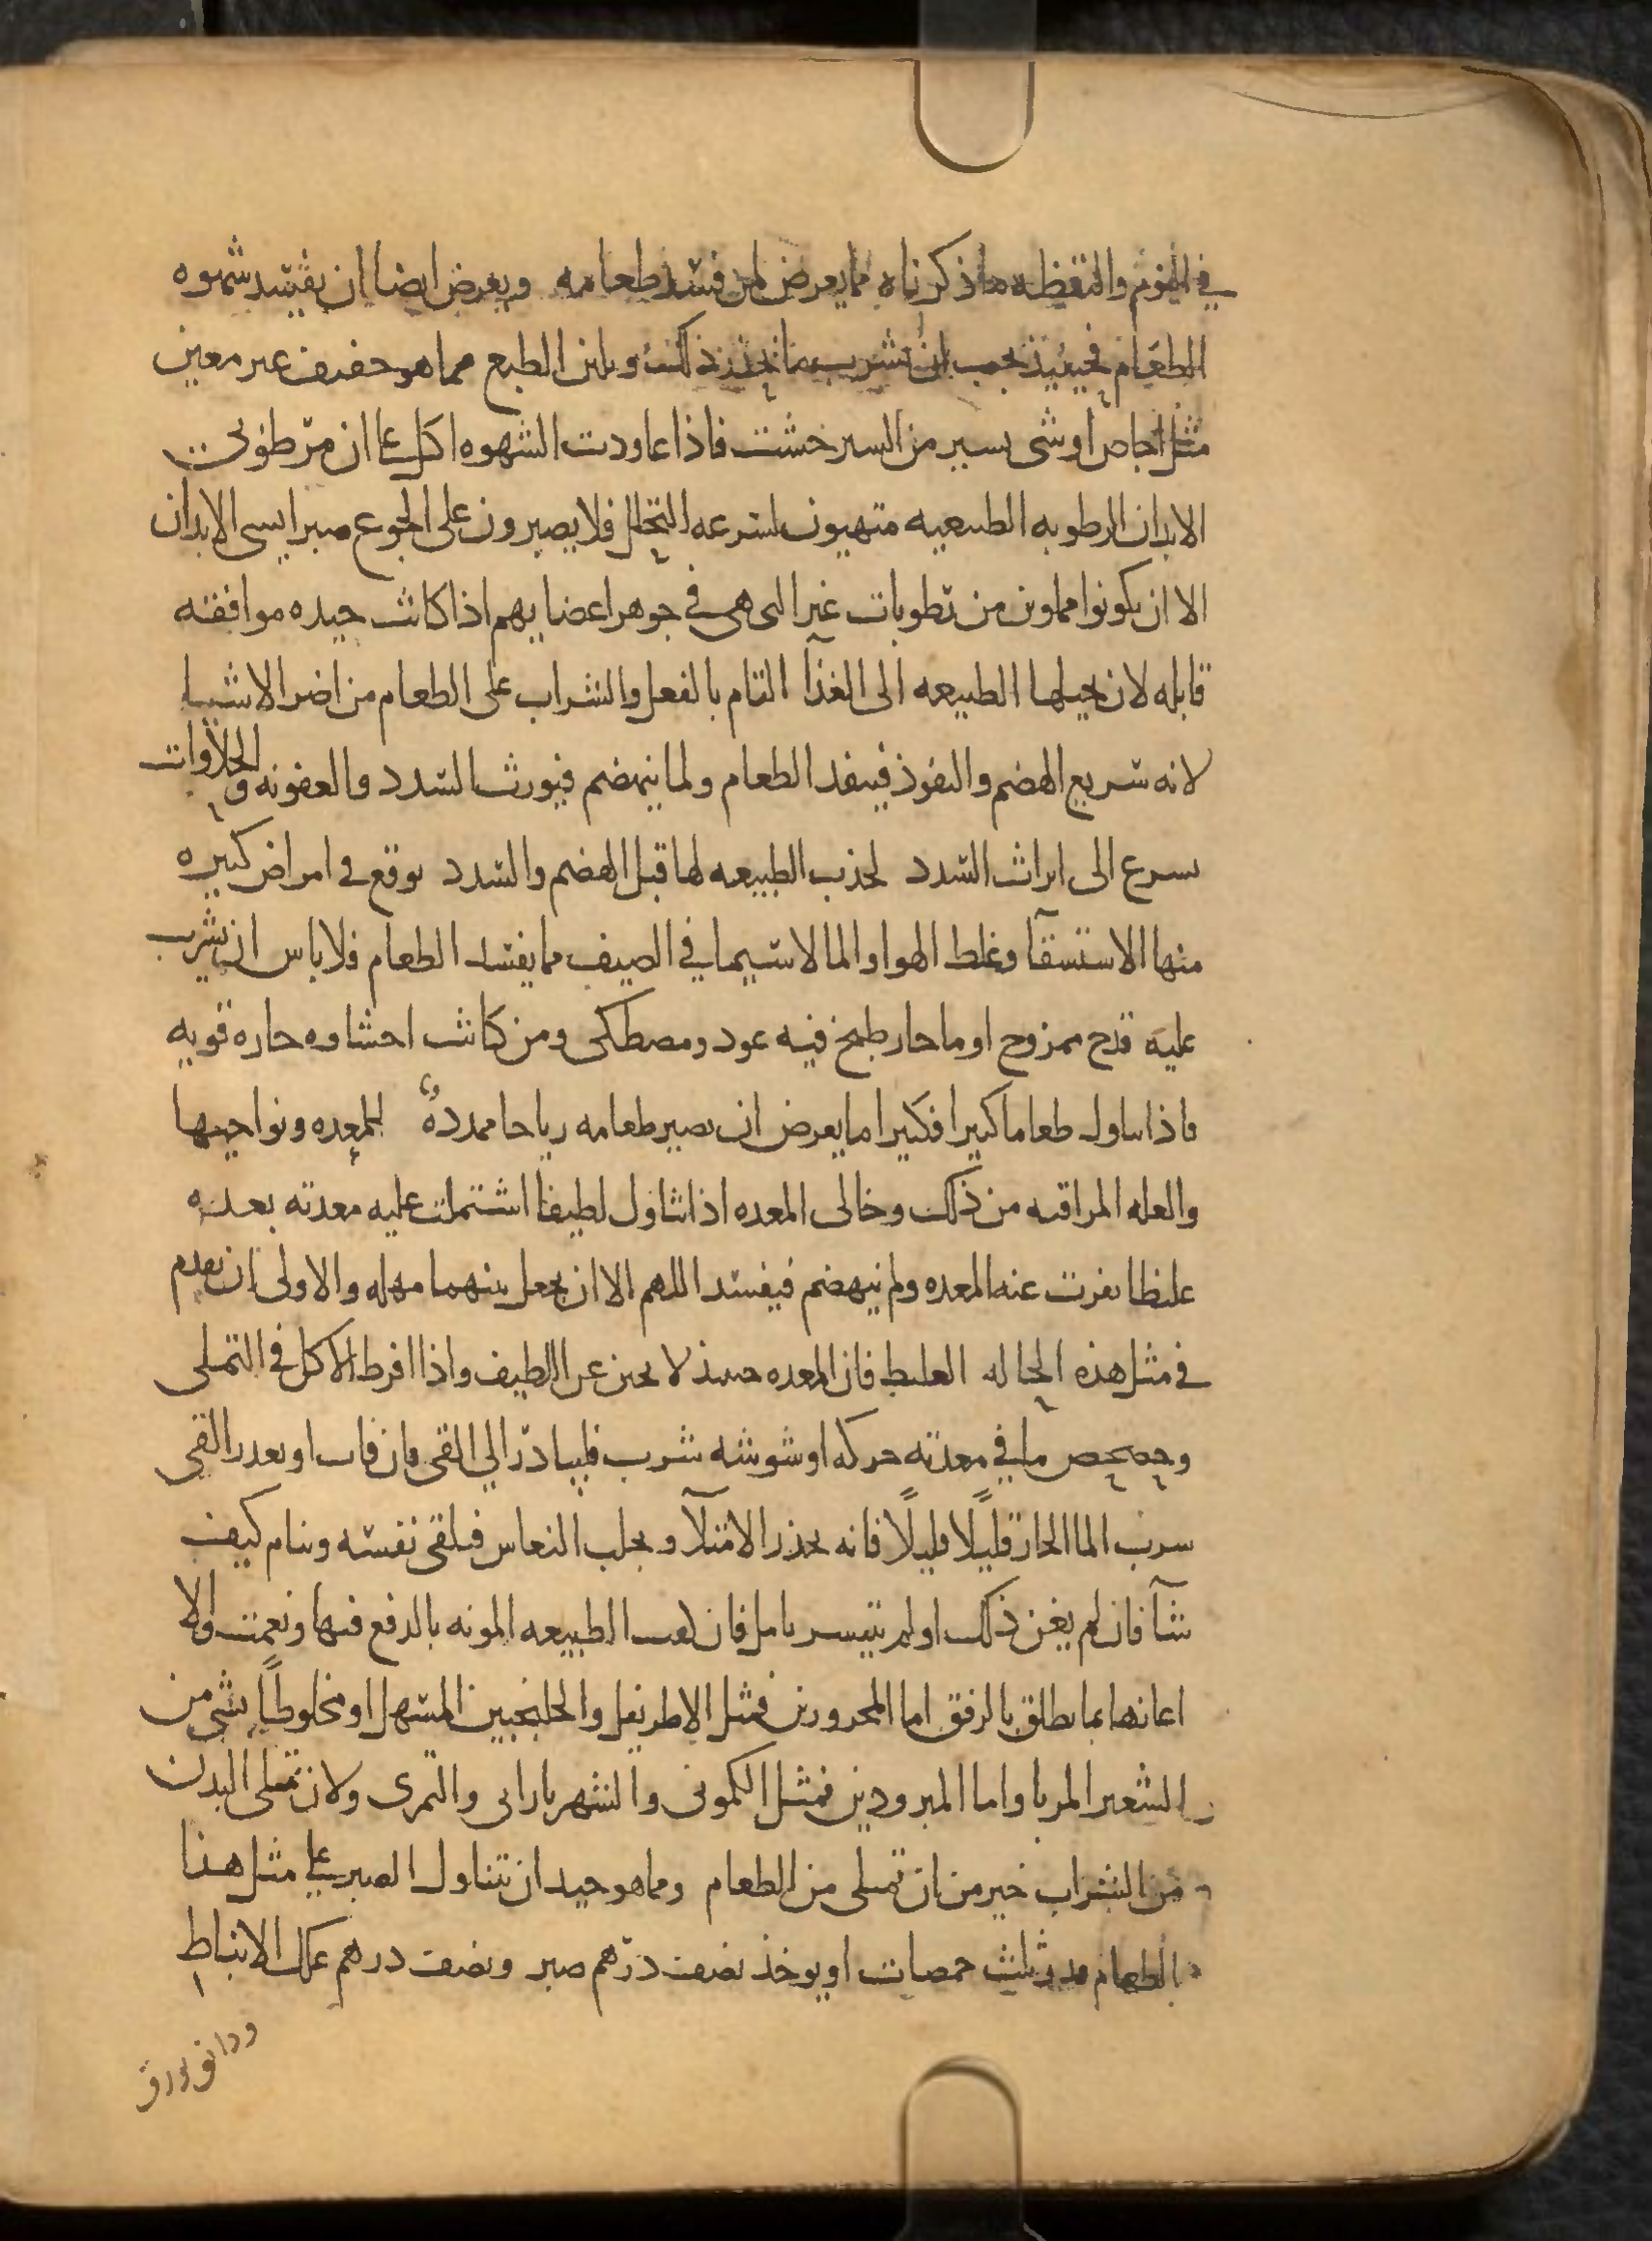 في النوم واليقظه ما ذكرناه مما يعرض لمن فسد طعامه ويعرض ايضا ان يفسد شهوه
الطعام فحينئذ يجب ان يشرب ما يحدر ذلك ويلين الطبع مما هو خفيف غير معين
مثل اجاص او شى يسير من السير خشت فاذا عاودت الشهوه اكل على ان مرطوبي
الابدان الرطوبه الطبيعيه متهيون لسرعه التحلل فلا يصبرون على الجوع صبر ايسى الابدان
الا ان يكونوا مملوين من رطوبات غير التي هى في جوهر اعضايهم اذا كانت جيده موافقه
قابله لان يحيلها الطبيعه الى الغذآ التام بالفعل والشراب على الطعام من اضر الاشيا
لانه سريع الهضم والنفوذ فينفذ الطعام ولما ينهضم فيورث السدد والعفونه والحلاوات
يسرع الى ايراث السدد لجذب الطبيعه لها قبل الهضم والسدد يوقع في امراض كثيره
منها الاستسقآ وغلظ الهوا والما لا سيما في الصيف مما يفسد الطعام فلا باس ان يشرب
عليه قدح ممزوج او ما حار طبخ فيه عود ومصطكى ومن كانت احشاوه حاره قويه
فاذا تناول طعاما كثيرا فكثيرا ما يعرض ان يصير طعامه رياحا ممدده للمعده ونواحيها
والعله المراقيه من ذلك وخالى المعده اذا تناول لطيفا اشتملت عليه معدته بعده
غليظا نفرت عنه المعده ولم ينهضم فيفسد اللهم الا ان يجعل بينهما مهله والاولى ان يقدم
في مثل هذه الحاله الغليظ فان المعده حينئذ لا تجبن عن اللطيف واذا افرط الاكل في التملى
وخضخض ما في معدته حركه او شوشه شرب فليبادر الى القى فان فات او تعذر القى
شرب الما الحار قليلًا قليلًا فانه يحدر الامتلآ ويجلب النعاس فيلقى نفسه وينام كيف
شآ فان لم يغن ذلك او لم يتيسر تامل فان كفت الطبيعه المونه بالدفع فبها ونعمت والا
اعانها بما يطلق بالرفق اما المحرورين فمثل الاطريفل والجلنجبين المسهل او مخلوطًا بشى من
الشعير المربا واما المبرودين فمثل الكمونى والشهريارانى والتمرى ولان تمتلى البدن
من الشراب خير من ان تمتلى من الطعام ومما هو جيد ان يتناول الصبر على مثل هذا
الطعام قدر ثلث حمصات او يوخذ نصف درهم صبر ونصف درهم علك الانباط
ودانق بورق